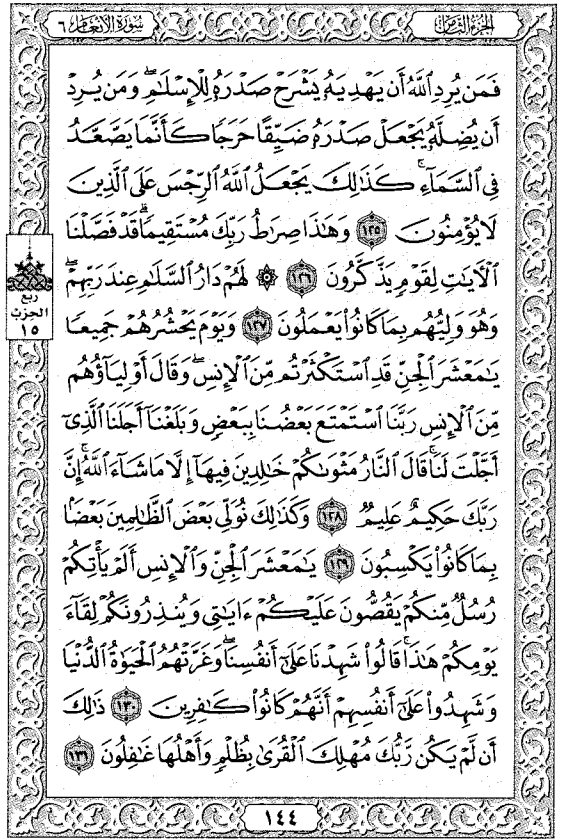 سورة الأنعام ٦
الجزء الثامن
فَمَن يُرِدِ ٱللَّهُ أَن يَهْدِيَهُۥ يَشْرَحْ صَدْرَهُۥ لِلْإِسْلَٰمِ ۖ وَمَن يُرِدْ
أَن يُضِلَّهُۥ يَجْعَلْ صَدْرَهُۥ ضَيِّقًا حَرَجًا كَأَنَّمَا يَصَّعَّدُ
فِي ٱلسَّمَآءِ ۚ كَذَٰلِكَ يَجْعَلُ ٱللَّهُ ٱلرِّجْسَ عَلَى ٱلَّذِينَ
لَا يُؤْمِنُونَ ١٢٥ وَهَٰذَا صِرَٰطُ رَبِّكَ مُسْتَقِيمًا ۗ قَدْ فَصَّلْنَا
ٱلْءَايَٰتِ لِقَوْمٍ يَذَّكَّرُونَ ١٢٦ ۞ لَهُمْ دَارُ ٱلسَّلَٰمِ عِندَ رَبِّهِمْ ۖ
وَهُوَ وَلِيُّهُم بِمَا كَانُوا۟ يَعْمَلُونَ ١٢٧ وَيَوْمَ يَحْشُرُهُمْ جَمِيعًا
يَٰمَعْشَرَ ٱلْجِنِّ قَدِ ٱسْتَكْثَرْتُم مِّنَ ٱلْإِنسِ ۖ وَقَالَ أَوْلِيَآؤُهُم
مِّنَ ٱلْإِنسِ رَبَّنَا ٱسْتَمْتَعَ بَعْضُنَا بِبَعْضٍ وَبَلَغْنَآ أَجَلَنَا ٱلَّذِىٓ
أَجَّلْتَ لَنَا ۚ قَالَ ٱلنَّارُ مَثْوَىٰكُمْ خَٰلِدِينَ فِيهَآ إِلَّا مَا شَآءَ ٱللَّهُ ۗ إِنَّ
رَبَّكَ حَكِيمٌ عَلِيمٌ ١٢٨ وَكَذَٰلِكَ نُوَلِّى بَعْضَ ٱلظَّٰلِمِينَ بَعْضًۢا
بِمَا كَانُوا۟ يَكْسِبُونَ ١٢٩ يَٰمَعْشَرَ ٱلْجِنِّ وَٱلْإِنسِ أَلَمْ يَأْتِكُمْ
رُسُلٌ مِّنكُمْ يَقُصُّونَ عَلَيْكُمْ ءَايَٰتِى وَيُنذِرُونَكُمْ لِقَآءَ
يَوْمِكُمْ هَٰذَا ۚ قَالُوا۟ شَهِدْنَا عَلَىٰٓ أَنفُسِنَا ۖ وَغَرَّتْهُمُ ٱلْحَيَوٰةُ ٱلدُّنْيَا
وَشَهِدُوا۟ عَلَىٰٓ أَنفُسِهِمْ أَنَّهُمْ كَانُوا۟ كَٰفِرِينَ ١٣٠ ذَٰلِكَ
أَن لَّمْ يَكُن رَّبُّكَ مُهْلِكَ ٱلْقُرَىٰ بِظُلْمٍ وَأَهْلُهَا غَٰفِلُونَ ١٣١
ربع
الحزب
١٥
١٤٤